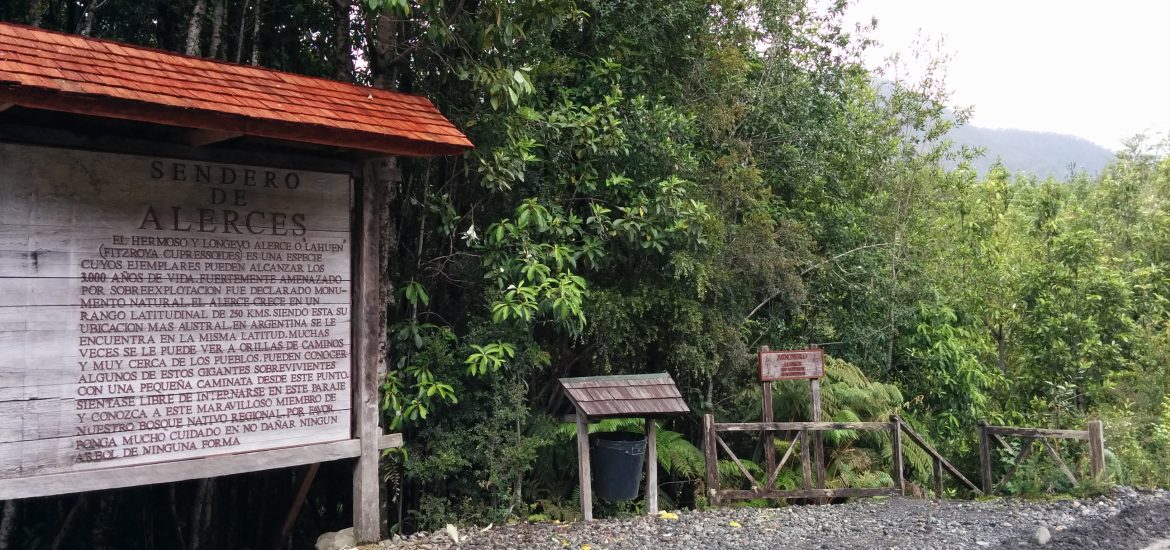 SENDERO
DE
ALERCES
EL HERMOSO Y LONGEVO ALERCE O LAHUEN
(FITZROYA CUPRESSOIDES) ES UNA ESPECIE
CUYOS EJEMPLARES PUEDEN ALCANZAR LOS
3.000 AÑOS DE VIDA. FUERTEMENTE AMENAZADO
POR SOBREEXPLOTACION FUE DECLARADO MONU-
MENTO NATURAL. EL ALERCE CRECE EN UN
RANGO LATITUDINAL DE 250 KMS. SIENDO ESTA SU
UBICACION MAS AUSTRAL. EN ARGENTINA SE LE
ENCUENTRA EN LA MISMA LATITUD. MUCHAS
VECES SE LE PUEDE VER A ORILLAS DE CAMINOS
Y MUY CERCA DE LOS PUEBLOS. PUEDEN CONOCER
ALGUNOS DE ESTOS GIGANTES SOBREVIVIENTES
CON UNA PEQUEÑA CAMINATA DESDE ESTE PUNTO.
SIENTASE LIBRE DE INTERNARSE EN ESTE PARAJE
Y CONOZCA A ESTE MARAVILLOSO MIEMBRO DE
NUESTRO BOSQUE NATIVO REGIONAL. POR FAVOR
PONGA MUCHO CUIDADO EN NO DAÑAR NINGUN
ARBOL DE NINGUNA FORMA